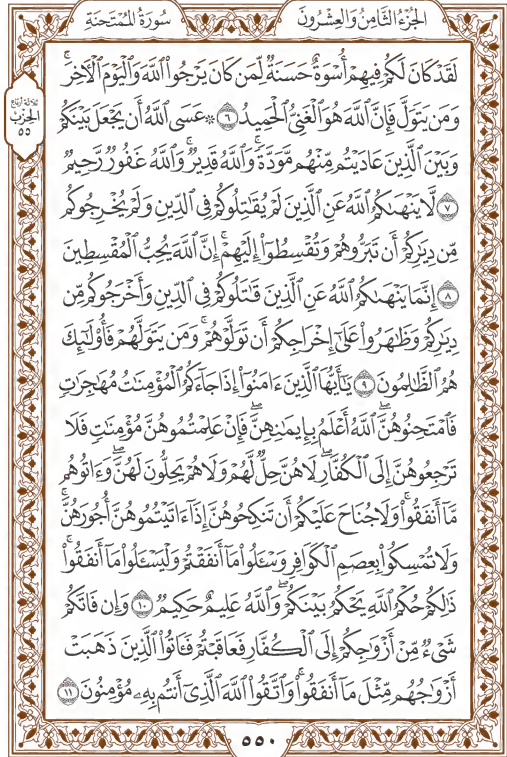 الجُزْءُ الثَّامِنُ وَالعِشْرُونَ
سُورَةُ المُمْتَحَنَةِ
لَقَدْ كَانَ لَكُمْ فِيهِمْ أُسْوَةٌ حَسَنَةٌ لِّمَن كَانَ يَرْجُوا۟ ٱللَّهَ وَٱلْيَوْمَ ٱلْـَٔاخِرَ ۚ
وَمَن يَتَوَلَّ فَإِنَّ ٱللَّهَ هُوَ ٱلْغَنِىُّ ٱلْحَمِيدُ ٦ ۞ عَسَى ٱللَّهُ أَن يَجْعَلَ بَيْنَكُمْ
وَبَيْنَ ٱلَّذِينَ عَادَيْتُم مِّنْهُم مَّوَدَّةً ۚ وَٱللَّهُ قَدِيرٌ ۚ وَٱللَّهُ غَفُورٌ رَّحِيمٌ
٧ لَّا يَنْهَىٰكُمُ ٱللَّهُ عَنِ ٱلَّذِينَ لَمْ يُقَـٰتِلُوكُمْ فِى ٱلدِّينِ وَلَمْ يُخْرِجُوكُم
مِّن دِيَـٰرِكُمْ أَن تَبَرُّوهُمْ وَتُقْسِطُوٓا۟ إِلَيْهِمْ ۚ إِنَّ ٱللَّهَ يُحِبُّ ٱلْمُقْسِطِينَ
٨ إِنَّمَا يَنْهَىٰكُمُ ٱللَّهُ عَنِ ٱلَّذِينَ قَـٰتَلُوكُمْ فِى ٱلدِّينِ وَأَخْرَجُوكُم مِّن
دِيَـٰرِكُمْ وَظَـٰهَرُوا۟ عَلَىٰٓ إِخْرَاجِكُمْ أَن تَوَلَّوْهُمْ ۚ وَمَن يَتَوَلَّهُمْ فَأُو۟لَـٰٓئِكَ
هُمُ ٱلظَّـٰلِمُونَ ٩ يَـٰٓأَيُّهَا ٱلَّذِينَ ءَامَنُوٓا۟ إِذَا جَآءَكُمُ ٱلْمُؤْمِنَـٰتُ مُهَـٰجِرَٰتٍ
فَٱمْتَحِنُوهُنَّ ۖ ٱللَّهُ أَعْلَمُ بِإِيمَـٰنِهِنَّ ۖ فَإِنْ عَلِمْتُمُوهُنَّ مُؤْمِنَـٰتٍ فَلَا
تَرْجِعُوهُنَّ إِلَى ٱلْكُفَّارِ ۖ لَا هُنَّ حِلٌّ لَّهُمْ وَلَا هُمْ يَحِلُّونَ لَهُنَّ ۖ وَءَاتُوهُم
مَّآ أَنفَقُوا۟ ۚ وَلَا جُنَاحَ عَلَيْكُمْ أَن تَنكِحُوهُنَّ إِذَآ ءَاتَيْتُمُوهُنَّ أُجُورَهُنَّ ۚ
وَلَا تُمْسِكُوا۟ بِعِصَمِ ٱلْكَوَافِرِ وَسْـَٔلُوا۟ مَآ أَنفَقْتُمْ وَلْيَسْـَٔلُوا۟ مَآ أَنفَقُوا۟ ۚ
ذَٰلِكُمْ حُكْمُ ٱللَّهِ يَحْكُمُ بَيْنَكُمْ ۖ وَٱللَّهُ عَلِيمٌ حَكِيمٌ ١٠ وَإِن فَاتَكُمْ
شَىْءٌ مِّنْ أَزْوَٰجِكُمْ إِلَى ٱلْكُفَّارِ فَعَاقَبْتُمْ فَـَٔاتُوا۟ ٱلَّذِينَ ذَهَبَتْ
أَزْوَٰجُهُم مِّثْلَ مَآ أَنفَقُوا۟ ۚ وَٱتَّقُوا۟ ٱللَّهَ ٱلَّذِىٓ أَنتُم بِهِۦ مُؤْمِنُونَ ١١
ثلاثة أرباع
الحزب
٥٥
٥٥٠